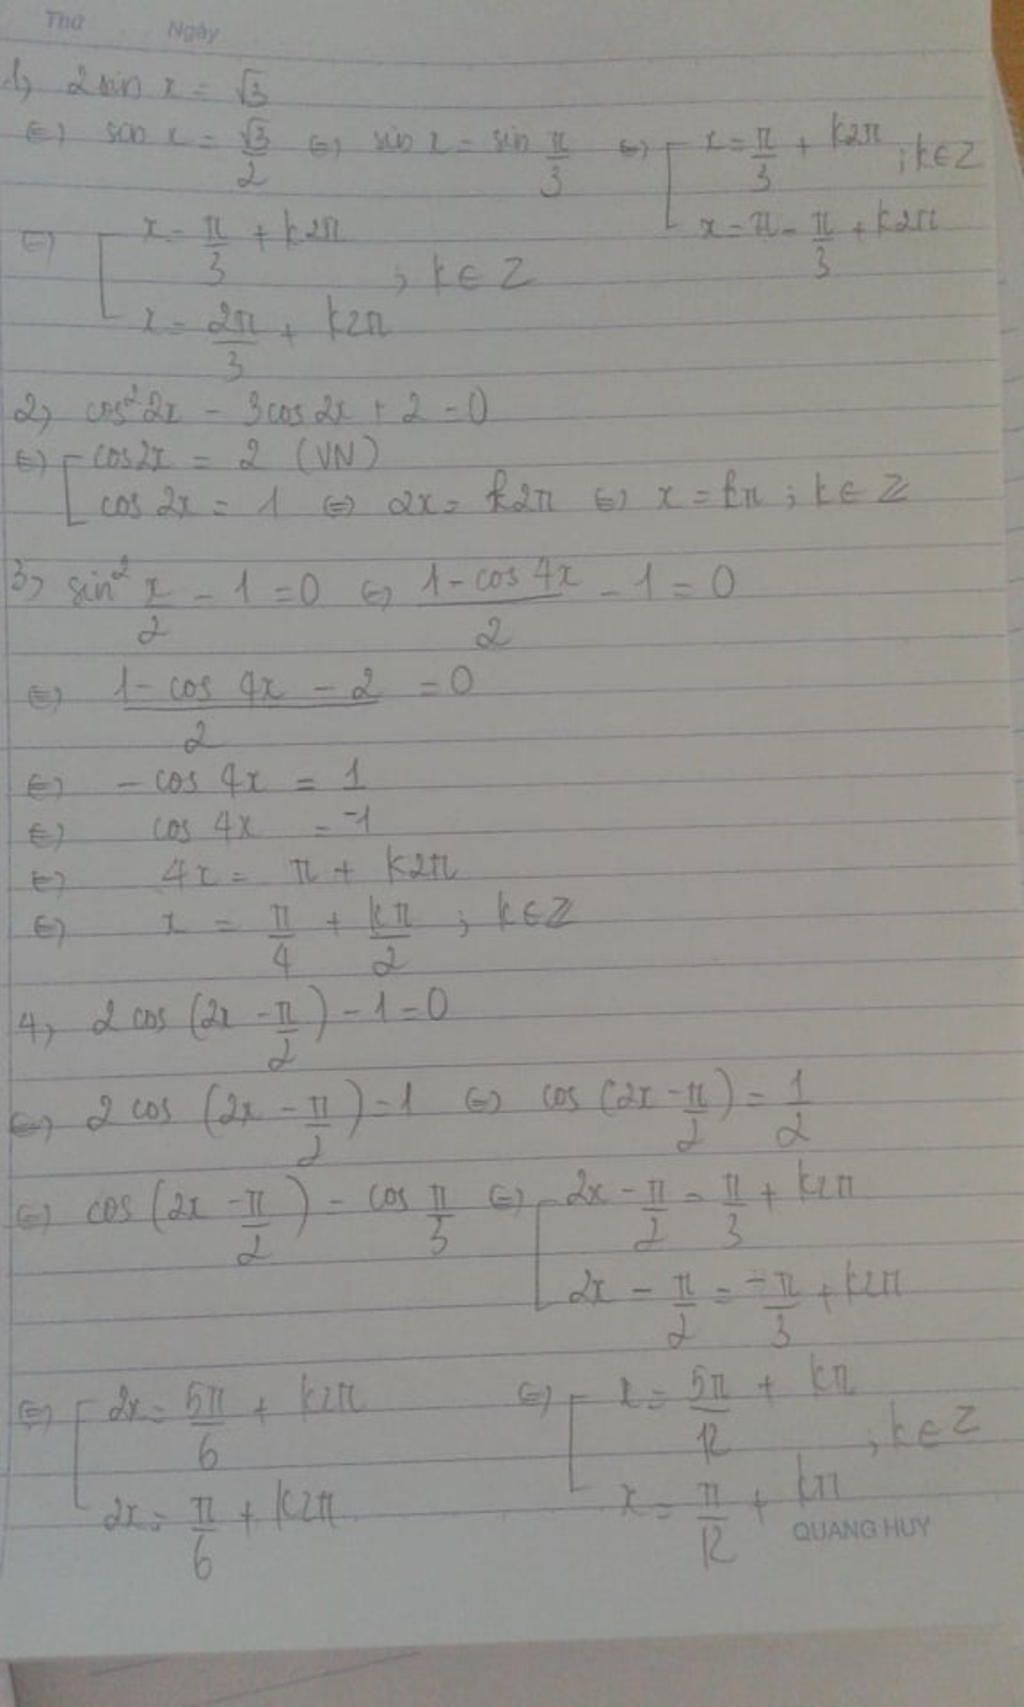 Thứ Ngày
1, 2 sin x = √3
⇔ sin x = √3/2 ⇔ sin x = sin π/3 ⇔ [ x = π/3 + k2π ; k∈Z
x = π - π/3 + k2π
⇔ [ x = π/3 + k2π ; k∈Z
x = 2π/3 + k2π
2, cos²2x - 3cos2x + 2 = 0
⇔ [ cos2x = 2 (VN)
cos 2x = 1 ⇔ 2x = k2π ⇔ x = kπ ; k∈Z
3, sin² x/2 - 1 = 0 ⇔ (1 - cos 4x)/2 - 1 = 0
⇔ (1 - cos 4x - 2)/2 = 0
⇔ - cos 4x = 1
⇔ cos 4x = -1
⇔ 4x = π + k2π
⇔ x = π/4 + kπ/2 ; k∈Z
4, 2 cos (2x - π/2) - 1 = 0
⇔ 2 cos (2x - π/2) = 1 ⇔ cos (2x - π/2) = 1/2
⇔ cos (2x - π/2) = cos π/3 ⇔ [ 2x - π/2 = π/3 + k2π
2x - π/2 = -π/3 + k2π
⇔ [ 2x = 5π/6 + k2π ⇔ [ x = 5π/12 + kπ ; k∈Z
2x = π/6 + k2π x = π/12 + kπ
QUANG HUY